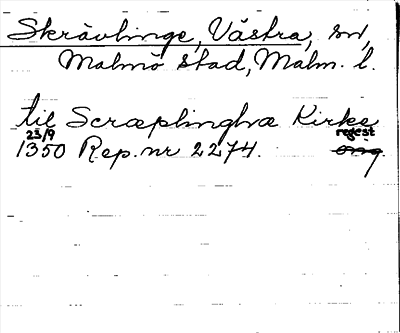 Skrävlinge, Västra, sn,
Malmö stad, Malm. l.
til Scræplinghæ Kirke
23/9 regest
1350 Rep. nr 2274. orig.